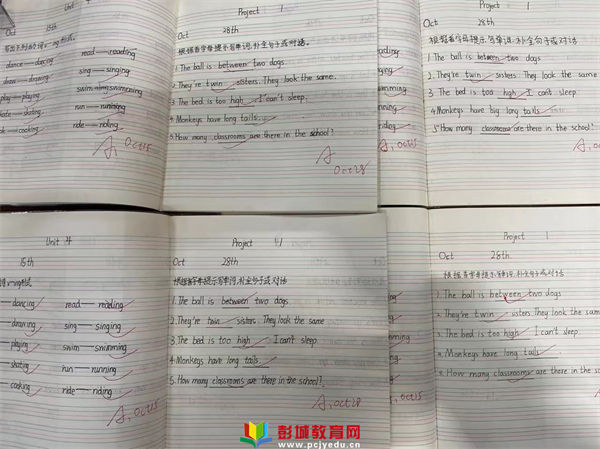 Oct 15th Unit 4
写出下列的词v-ing形式.
dance — dancing read — reading
draw — drawing sing — singing
play — playing swim — swimming
skate — skating run — running
cook — cooking ride — riding
A, Oct15
Project 1
Oct 28th
根据首字母提示写单词,补全句子或对话.
1.The ball is between two dogs.
2.They're twin sisters. They look the same.
3.The bed is too high. I can't sleep.
4.Monkeys have long tails.
5.How many classrooms are there in the school?
A Oct28
reading
singing
swimming
running
riding
A, Oct15
Project 1
Oct 28th
根据首字母提示写单词,补全句子或对话
1.The ball is between two dogs.
2.They're twin sisters. They look the same
3.The bed is too high I can't sleep.
4.Monkeys have big long tails.
5.How many classrooms are there in the school?
A, Oct28
Unit 4
15th
dancing read — reading
drawing sing — singing
playing swim — swimming
skating run — running
cooking ride — riding
A, Oct15
Project 1
Oct 28th
根据首字母提示写单词,补全句子或对话
1.The ball is between two dogs
2.They're twin sisters. They look the same
3.The bed is too high. I can't sleep
4.Monkeys have long tails.
5.How many classrooms are there in the school?
A, Oct28
reading
singing
swimming
running
riding
A, Oct15
Project 1
Oct 28th
根据首字母提示写单词,补全句子或对话
1.The ball is between two dogs
2.They're twin sisters They look the same
3.The bed is too high I can't sleep
4.Monkeys have long tails.
5.How many classrooms are there in the s
A, Oct28
彭城教育网
www.pcjyedu.cn